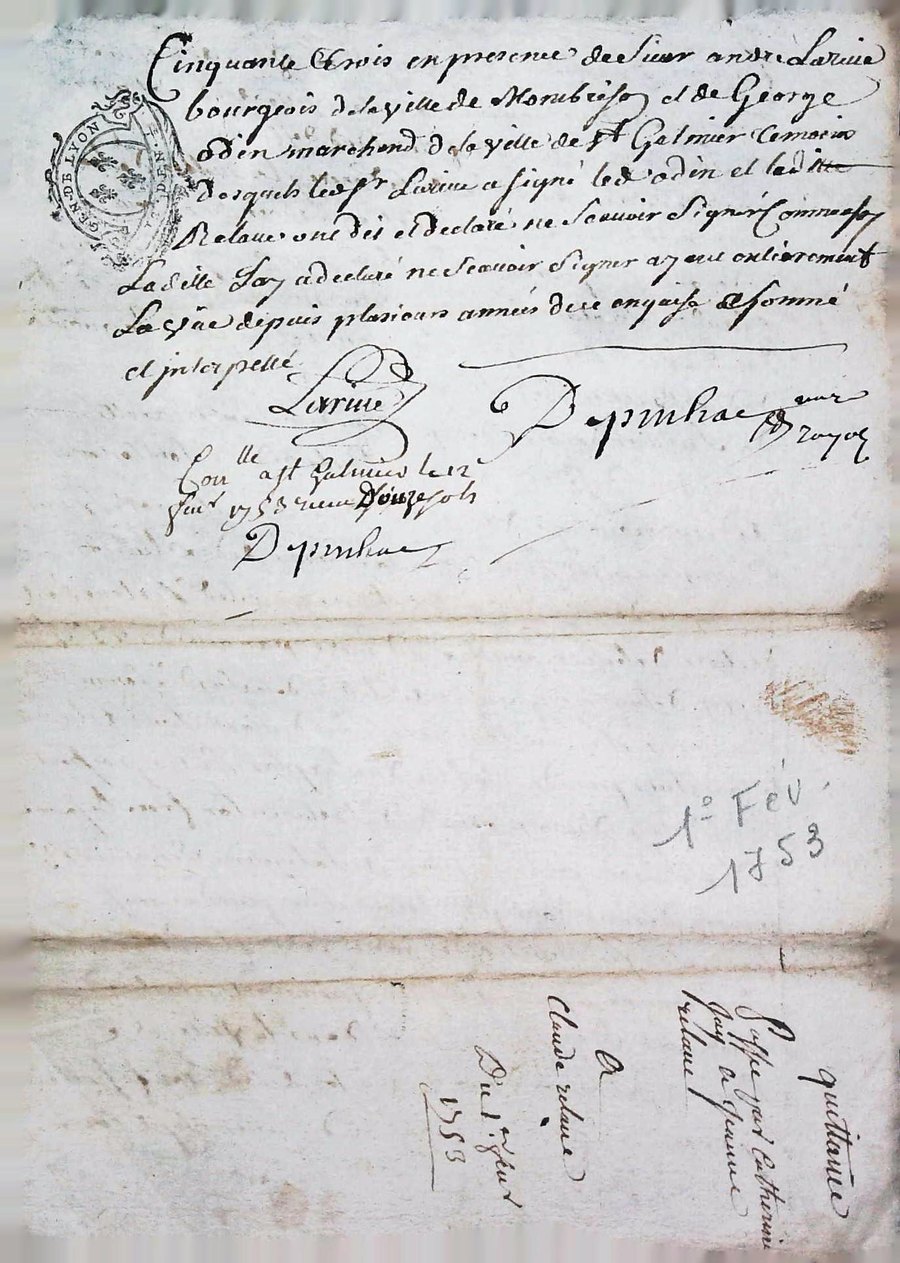 Cinquante trois en presence de Sieur andre Larive
bourgeois de la ville de Monbrison et de George
odin marchend de la ville de st Galmier temoins
desquels led sr Larive a signé led odin et laditte
Relave ont dit et declaré ne scavoir signer
Laditte Jay a declaré ne scavoir signer ayant entierement
La vüe depuis plusieurs années de ce enquise et sommé
et interpellé
Larive
Depinhac
Royal
Conlle a st Galmier le 12
fevr 1753 reçu Douze sols
Depinhac
GEN·DE·LYON
1° Fév.
1753
quittance
passée par Catherine
Jay et Jeanne
relave
A
Claude relave
Du 1er fevr
1753